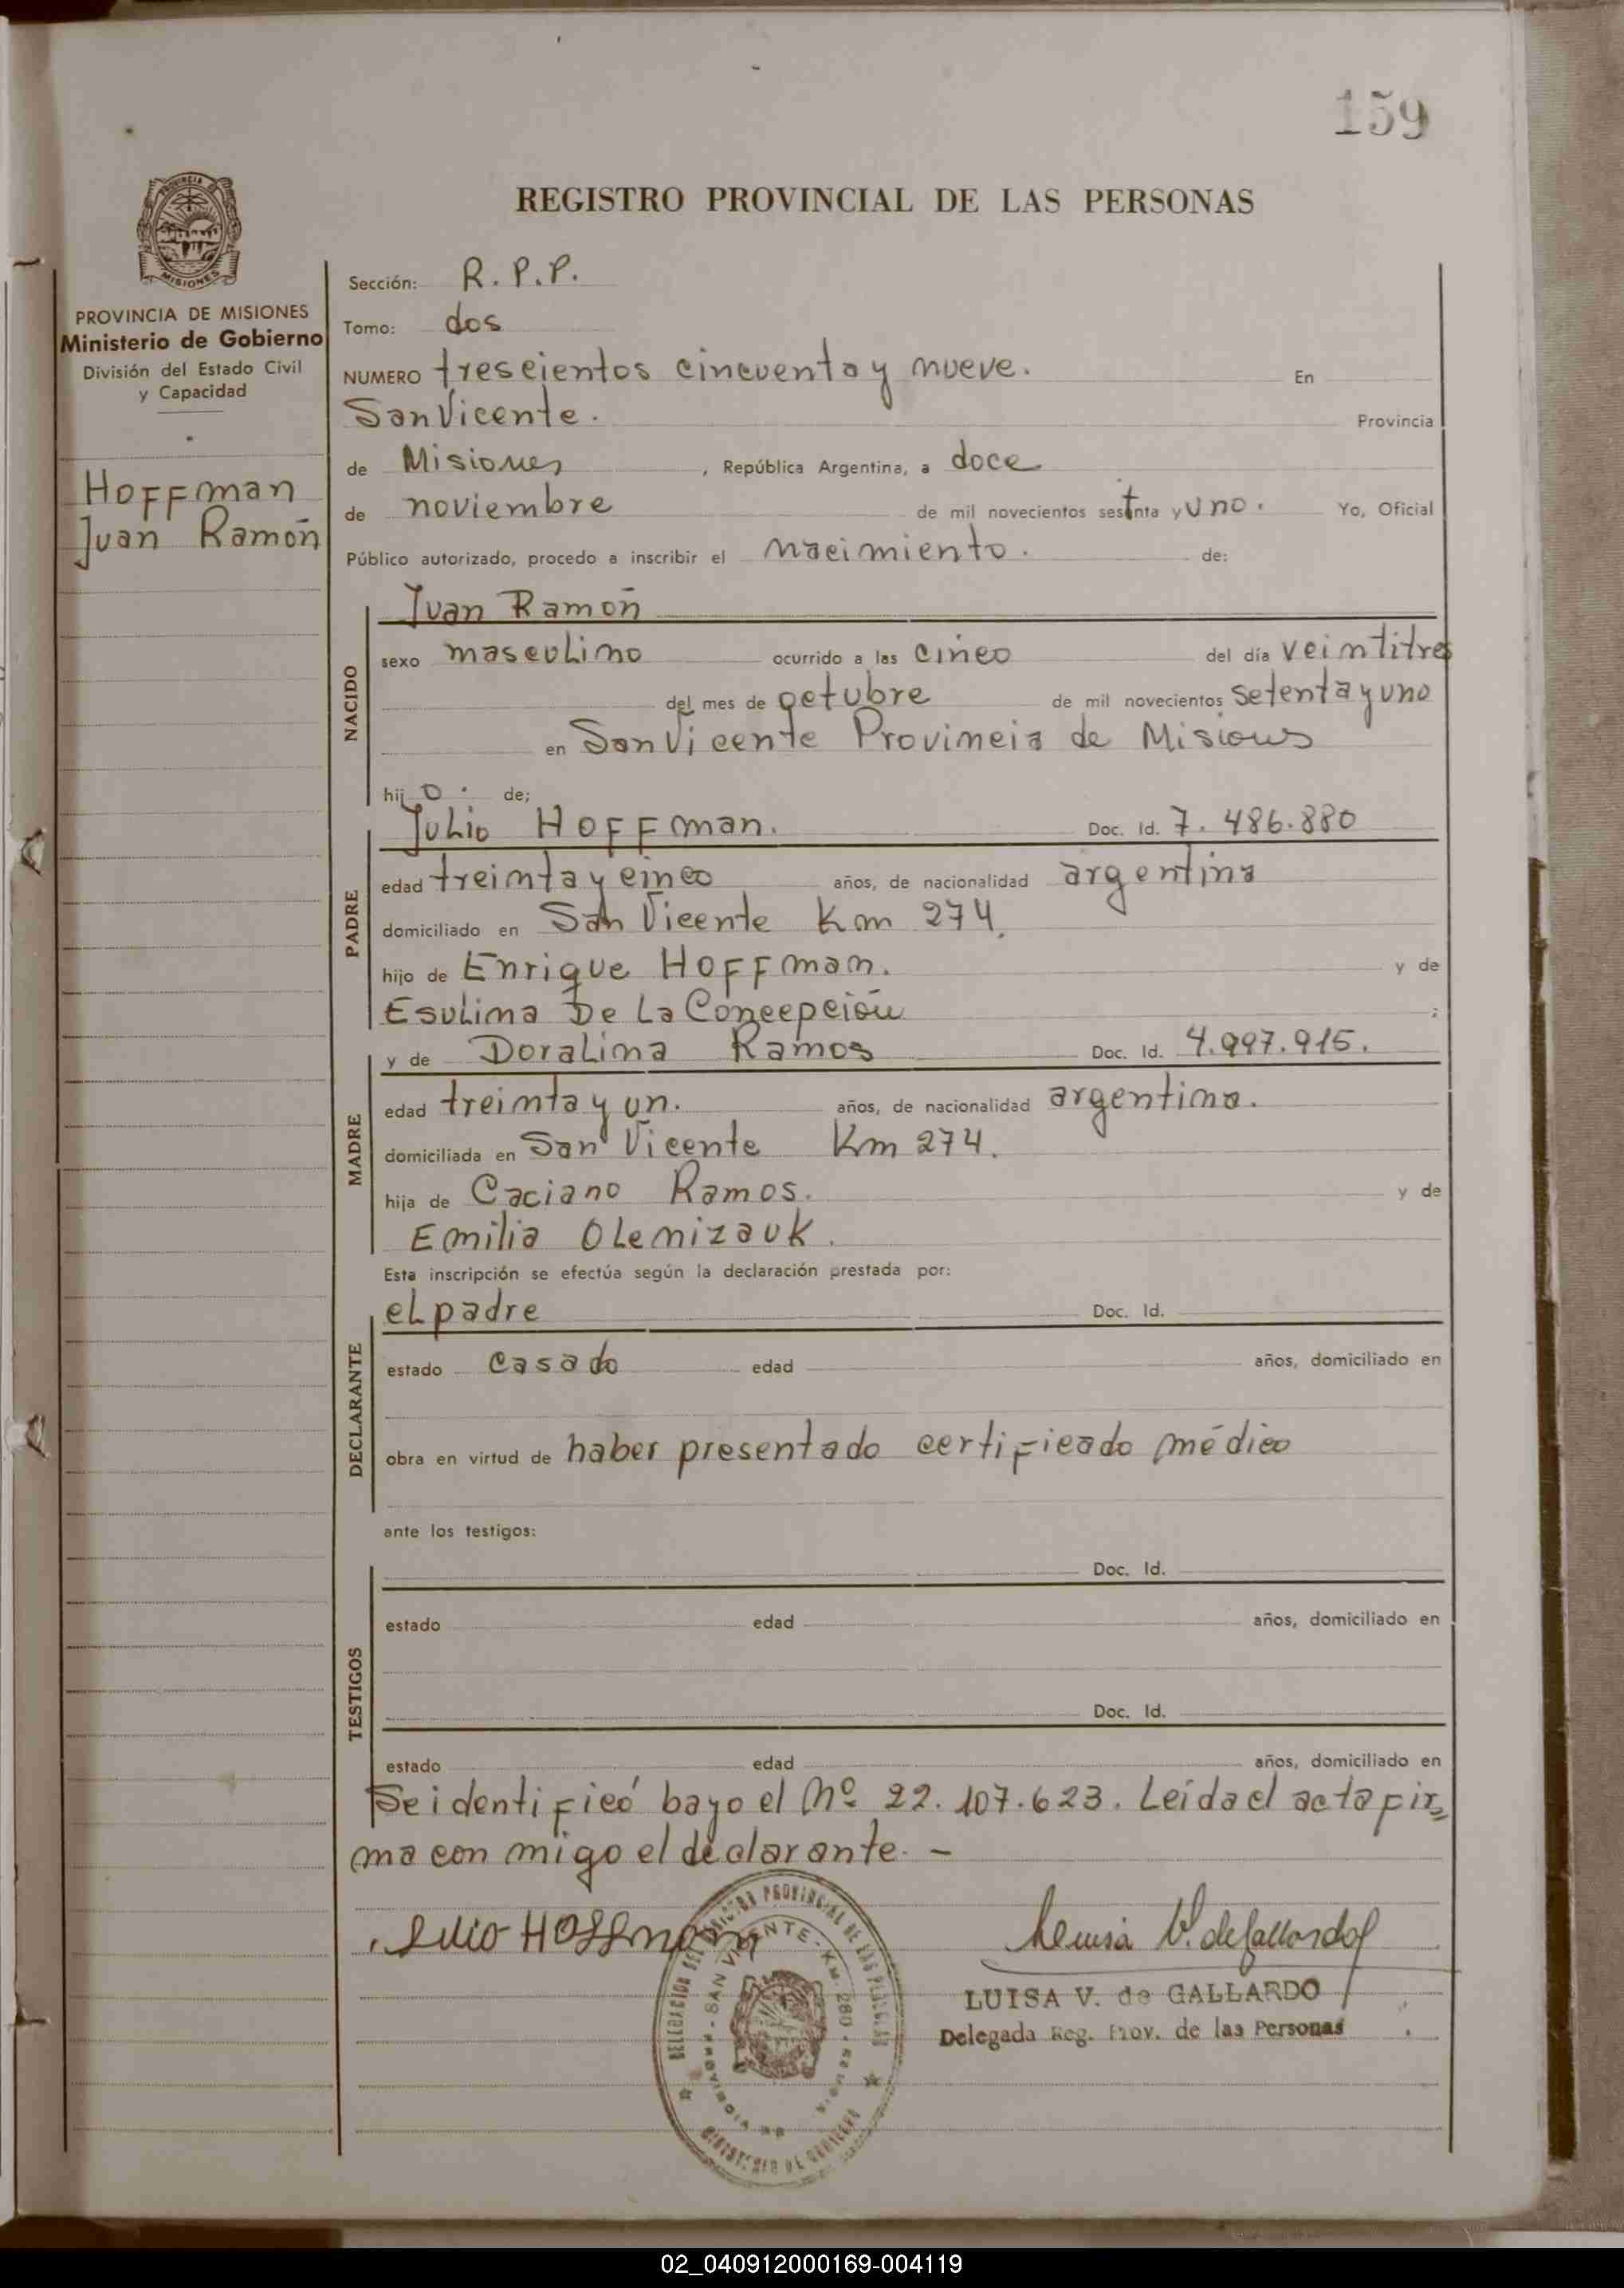 159
REGISTRO PROVINCIAL DE LAS PERSONAS
PROVINCIA
MISIONES
PROVINCIA DE MISIONES
Ministerio de Gobierno
División del Estado Civil
y Capacidad
Hoffman
Juan Ramón
Sección: R.P.P.
Tomo: dos
NUMERO trescientos cincuenta y nueve. En
San Vicente. Provincia
de Misiones, República Argentina, a doce
de noviembre de mil novecientos sestnta y uno. Yo, Oficial
Público autorizado, procedo a inscribir el nacimiento. de:
NACIDO
Juan Ramón
sexo masculino ocurrido a las cinco del día veintitres
del mes de octubre de mil novecientos setenta y uno
en San Vicente Provincia de Misiones
hijo. de;
PADRE
Julio Hoffman. Doc. Id. 7.486.880
edad treinta y cinco años, de nacionalidad argentina
domiciliado en San Vicente Km 274.
hijo de Enrique Hoffman. y de
Esulima De La Concepción ;
MADRE
y de Doralina Ramos Doc. Id. 4.997.915.
edad treinta y un. años, de nacionalidad argentina.
domiciliada en San Vicente Km 274.
hija de Caciano Ramos. y de
Emilia Olenizauk.
Esta inscripción se efectúa según la declaración prestada por:
DECLARANTE
el padre Doc. Id.
estado casado edad años, domiciliado en
obra en virtud de haber presentado certificado médico
ante los testigos:
TESTIGOS
Doc. Id.
estado edad años, domiciliado en
Doc. Id.
estado edad años, domiciliado en
Se identificó bayo el Nº 22.107.623. Leída el acta fir=
ma con migo el declarante. -
Julio Hoffman
Luisa V. de Gallardo
LUISA V. de GALLARDO
Delegada Reg. Prov. de las Personas
DELEGACION DEL REGISTRO PROVINCIAL DE LAS PERSONAS
SAN VICENTE - KM. 280
PROVINCIA DE
MINISTERIO DE GOBIERNO
02_040912000169-004119